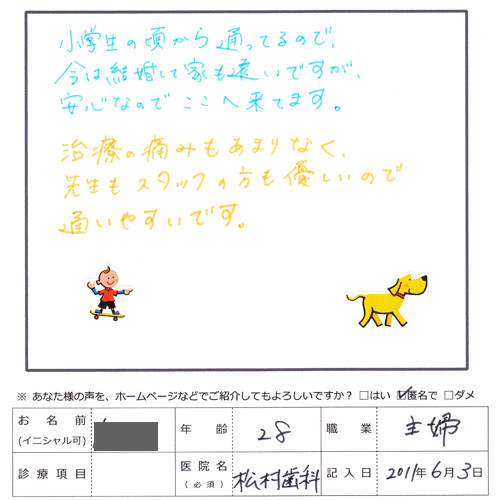 小学生の頃から通ってるので、
今は結婚して家も遠いですが、
安心なのでここへ来てます。
治療の痛みもあまりなく、
先生もスタッフの方も優しいので
通いやすいです。
※ あなた様の声を、ホームページなどでご紹介してもよろしいですか？ □はい ☑匿名で □ダメ
お名前 (イニシャル可) 年齢 28 職業 主婦
診療項目 医院名 (必須) 松村歯科 記入日 2011年6月3日